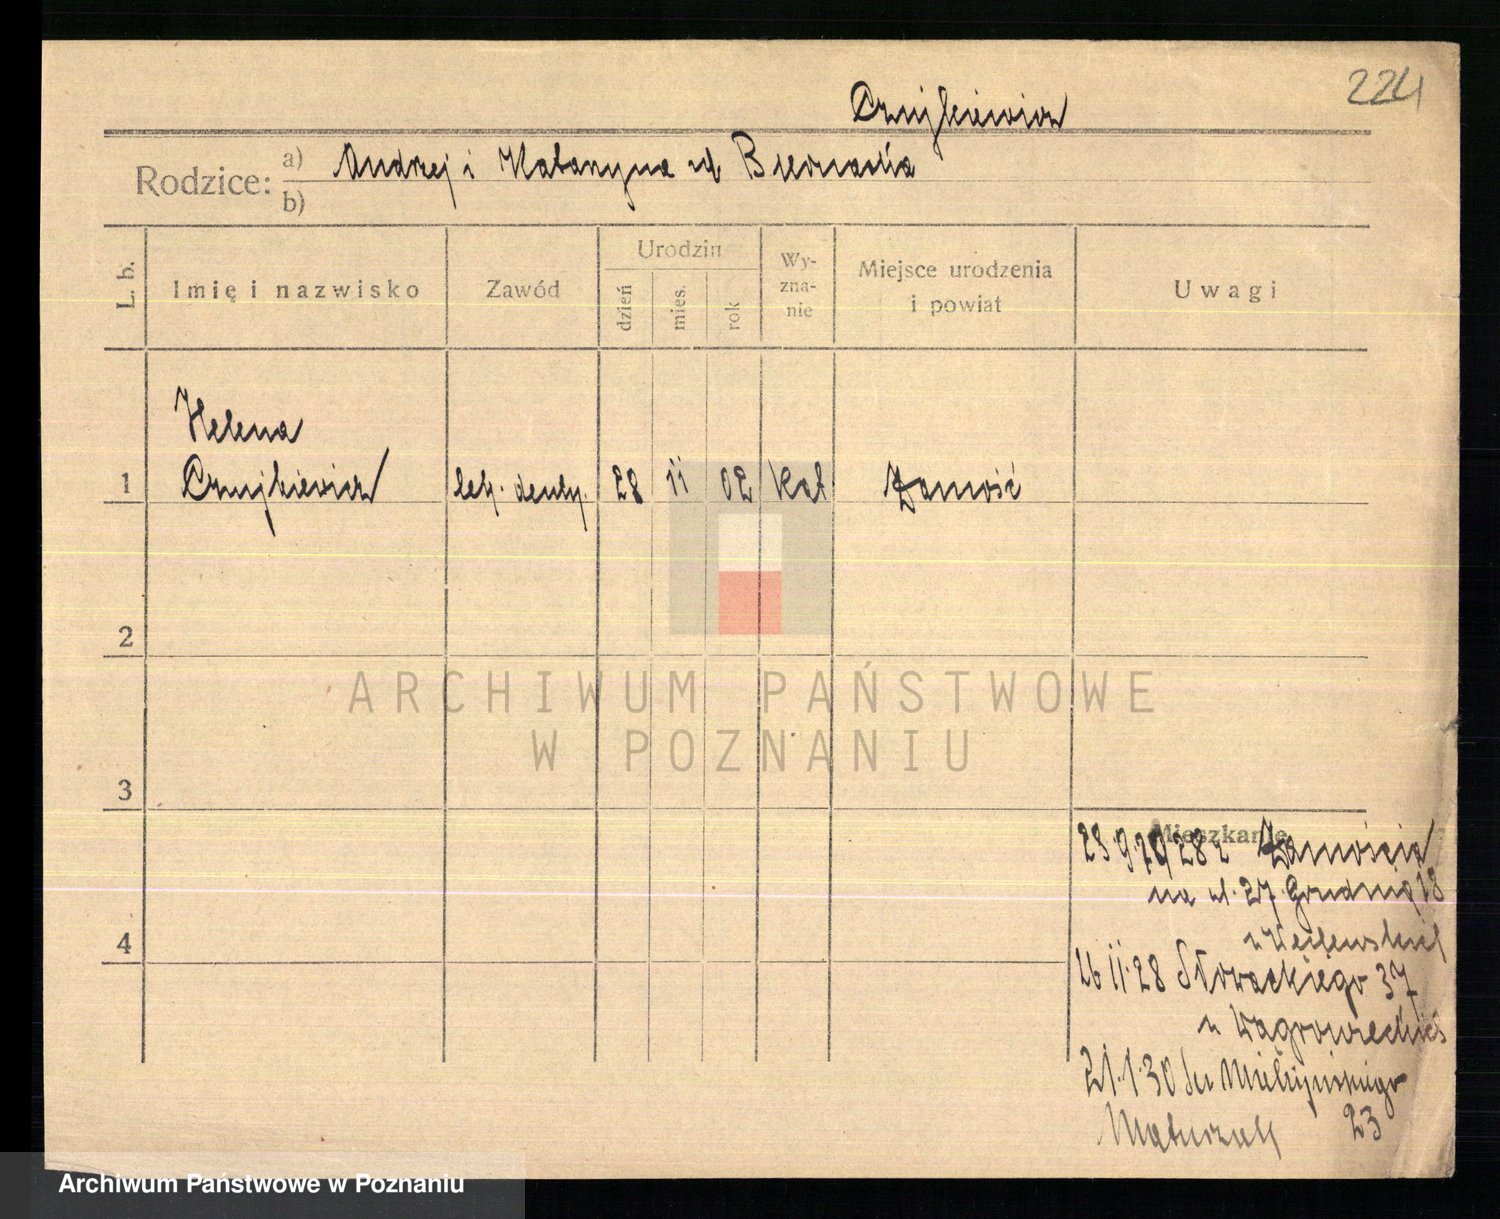 224
Czujkiewicz
Rodzice: a) Andrzej i Katarzyna ud Biernacka
b)
L. b.
Imię i nazwisko
Zawód
Urodzin
dzień
mies.
rok
Wy-
zna-
nie
Miejsce urodzenia
i powiat
Uwagi
Helena
1 Czujkiewicz lek. denty. 28 11 02 Kat Zamość
2
3
4
Mieszkanie
23.9.28 z Zamościa
na ul. 27 Grudnia 18
26 11.28 Słowackiego 37
u Wągrowieckiej
21.1.30 Mielżyńskiego
23
Matuszak
ARCHIWUM PAŃSTWOWE
W POZNANIU
Archiwum Państwowe w Poznaniu